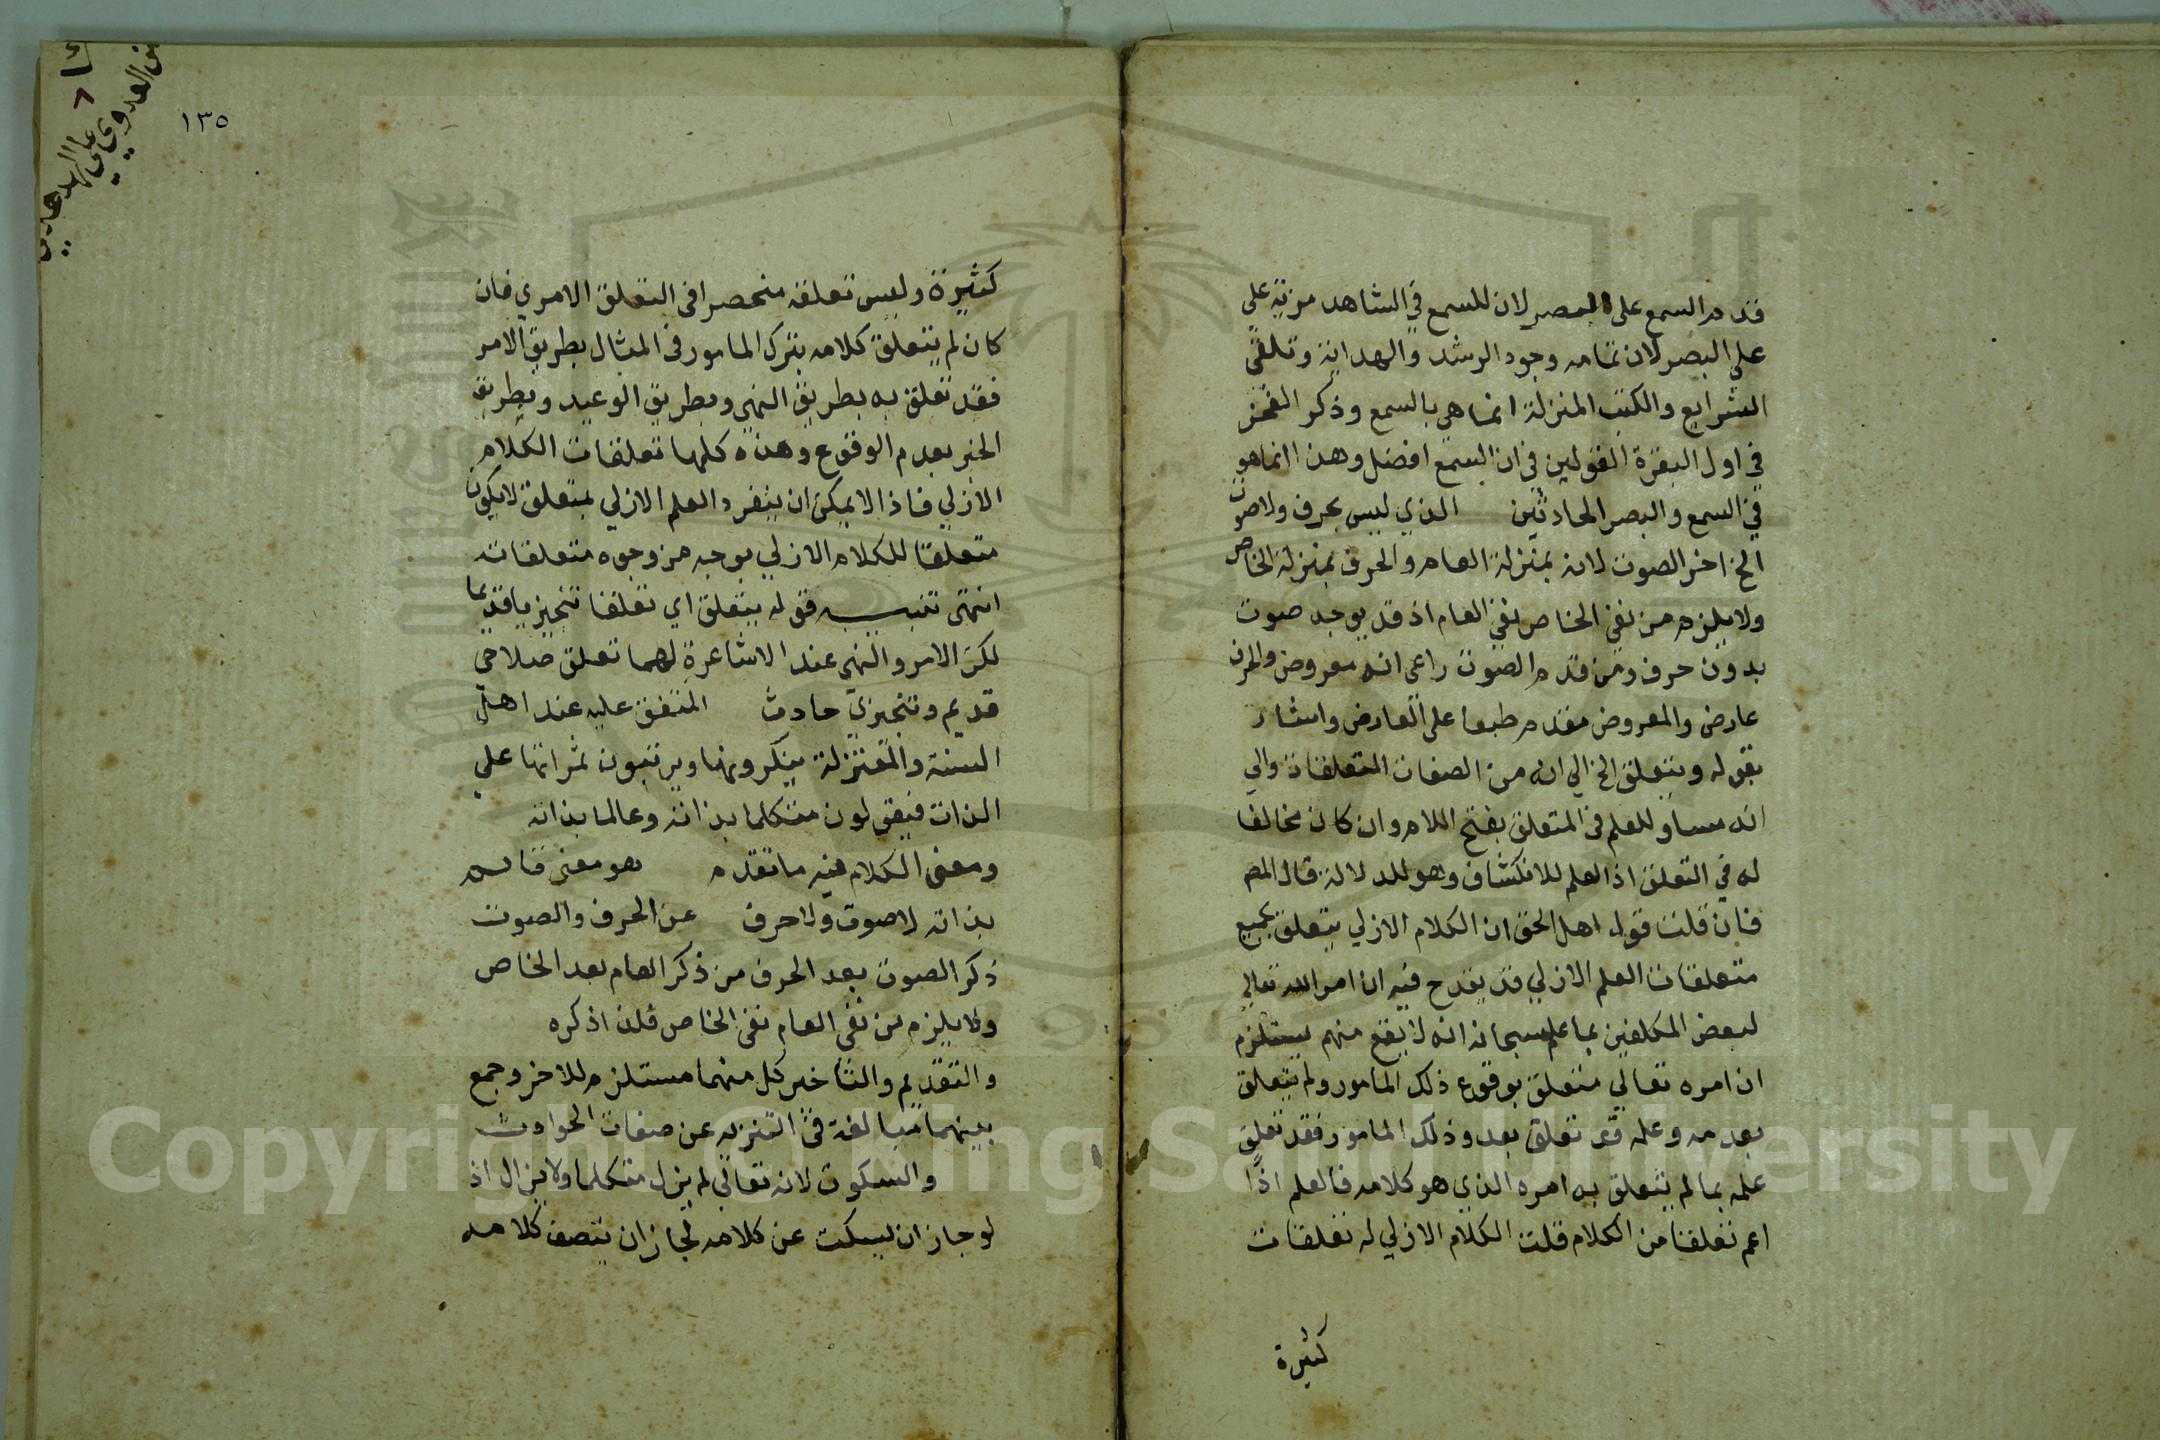 قدم السمع على البصر لان للسمع في الشاهد مزية على
على البصر لان تمامه وجود الرشد والهداية وتلقي
الشرايع والكتب المنزلة انما هي بالسمع وذكر الفخر
في اول البقرة القولين في ان السمع افضل وهذا انما هو
في السمع والبصر الحادثين الذي ليس بحرف ولا صوت
الخ اخر الصوت لانه بمنزلة العام والحرف بمنزلة الخاص
ولا يلزم من نفي الخاص نفي العام اذ قد يوجد صوت
بدون حرف ومن قدم الصوت راعى انه معروض والحرف
عارض والمعروض مقدم طبعا على العارض واشار
بقوله ويتعلق الخ الي انه من الصفات المتعلقات والي
انه مساو للعلم في المتعلق بفتح اللام وان كان مخالفا
له في التعلق اذ العلم للانكشاف وهو للدلالة قال المص
فان قلت قول اهل الحق ان الكلام الازلي يتعلق بجميع
متعلقات العلم الازلي قد يقدح فيه ان امر الله تعالي
لبعض المكلفين بما علم سبحانه انه لا يقع منهم يستلزم
ان امره تعالي متعلق بوقوع ذلك المامور ولم يتعلق
بعدمه وعلمه قد تعلق بعدم ذلك المامور فقد تعلق
علمه بما لم يتعلق به امره الذي هو كلامه فالعلم اذًا
اعم تعلقا من الكلام قلت الكلام الازلي له تعلقات
كثيرة
١٣٥
كثيرة وليس تعلقه منحصرا في التعلق الامري فان
كان لم يتعلق كلامه بترك المامور في المثال بطريق الامر
فقد تعلق به بطريق النهي وبطريق الوعيد وبطريق
الخبر بعدم الوقوع وهذه كلها تعلقات الكلام
الازلي فاذا لا يمكن ان ينفرد العلم الازلي بمتعلق لا يكون
متعلقا للكلام الازلي بوجه من وجوه متعلقاته
انتهى تنبيه قوله يتعلق اي تعلقا تنجيزيا قديما
لكن الامر والنهي عند الاشاعرة لهما تعلق صلاحي
قديم وتنجيزي حادث المتفق عليه عند اهل
السنة والمعتزلة ينكرونها ويرتبون ثمراتها علي
الذات فيقولون متكلما بذاته وعالما بذاته
ومعنى الكلام فيه ما تقدم هو معنى قائم
بذاته لا صوت ولا حرف عن الحرف والصوت
ذكر الصوت بعد الحرف من ذكر العام بعد الخاص
ولا يلزم من نفي العام نفي الخاص فلذا ذكره
والتقديم والتاخير كل منهما مستلزم للاخر وجمع
بينهما مبالغة في التنزيه عن صفات الحوادث
والسكوت لانه تعالي لم يزل متكلما ولا يزال اذ
لو جاز ان يسكت عن كلامه لجاز ان يتصف كلامه
Copyright © King Saud University